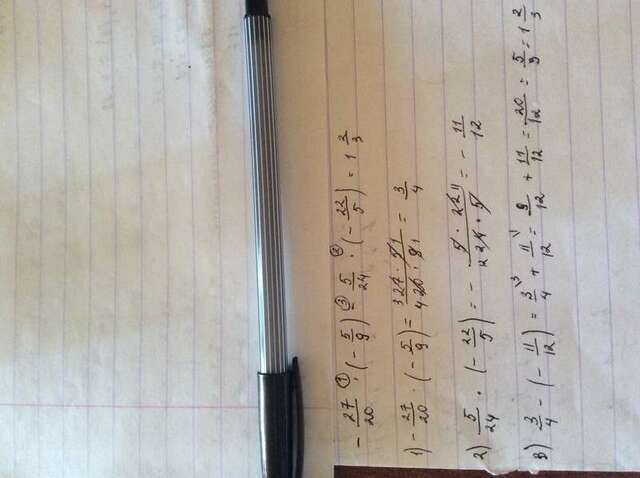 - 27/20 ① · (- 5/9) ③ - 5/24 ② · (- 22/5) = 1 2/3
1) - 27/20 · (- 5/9) = 3 27 · 5 1 / 4 20 · 9 1 = 3/4
2) 5/24 · (- 22/5) = - 5 · 22 11 / 2 24 · 5 = - 11/12
3) 3/4 - (- 11/12) = 3\3/4 + 11\1/12 = 9/12 + 11/12 = 20/12 = 5/3 = 1 2/3